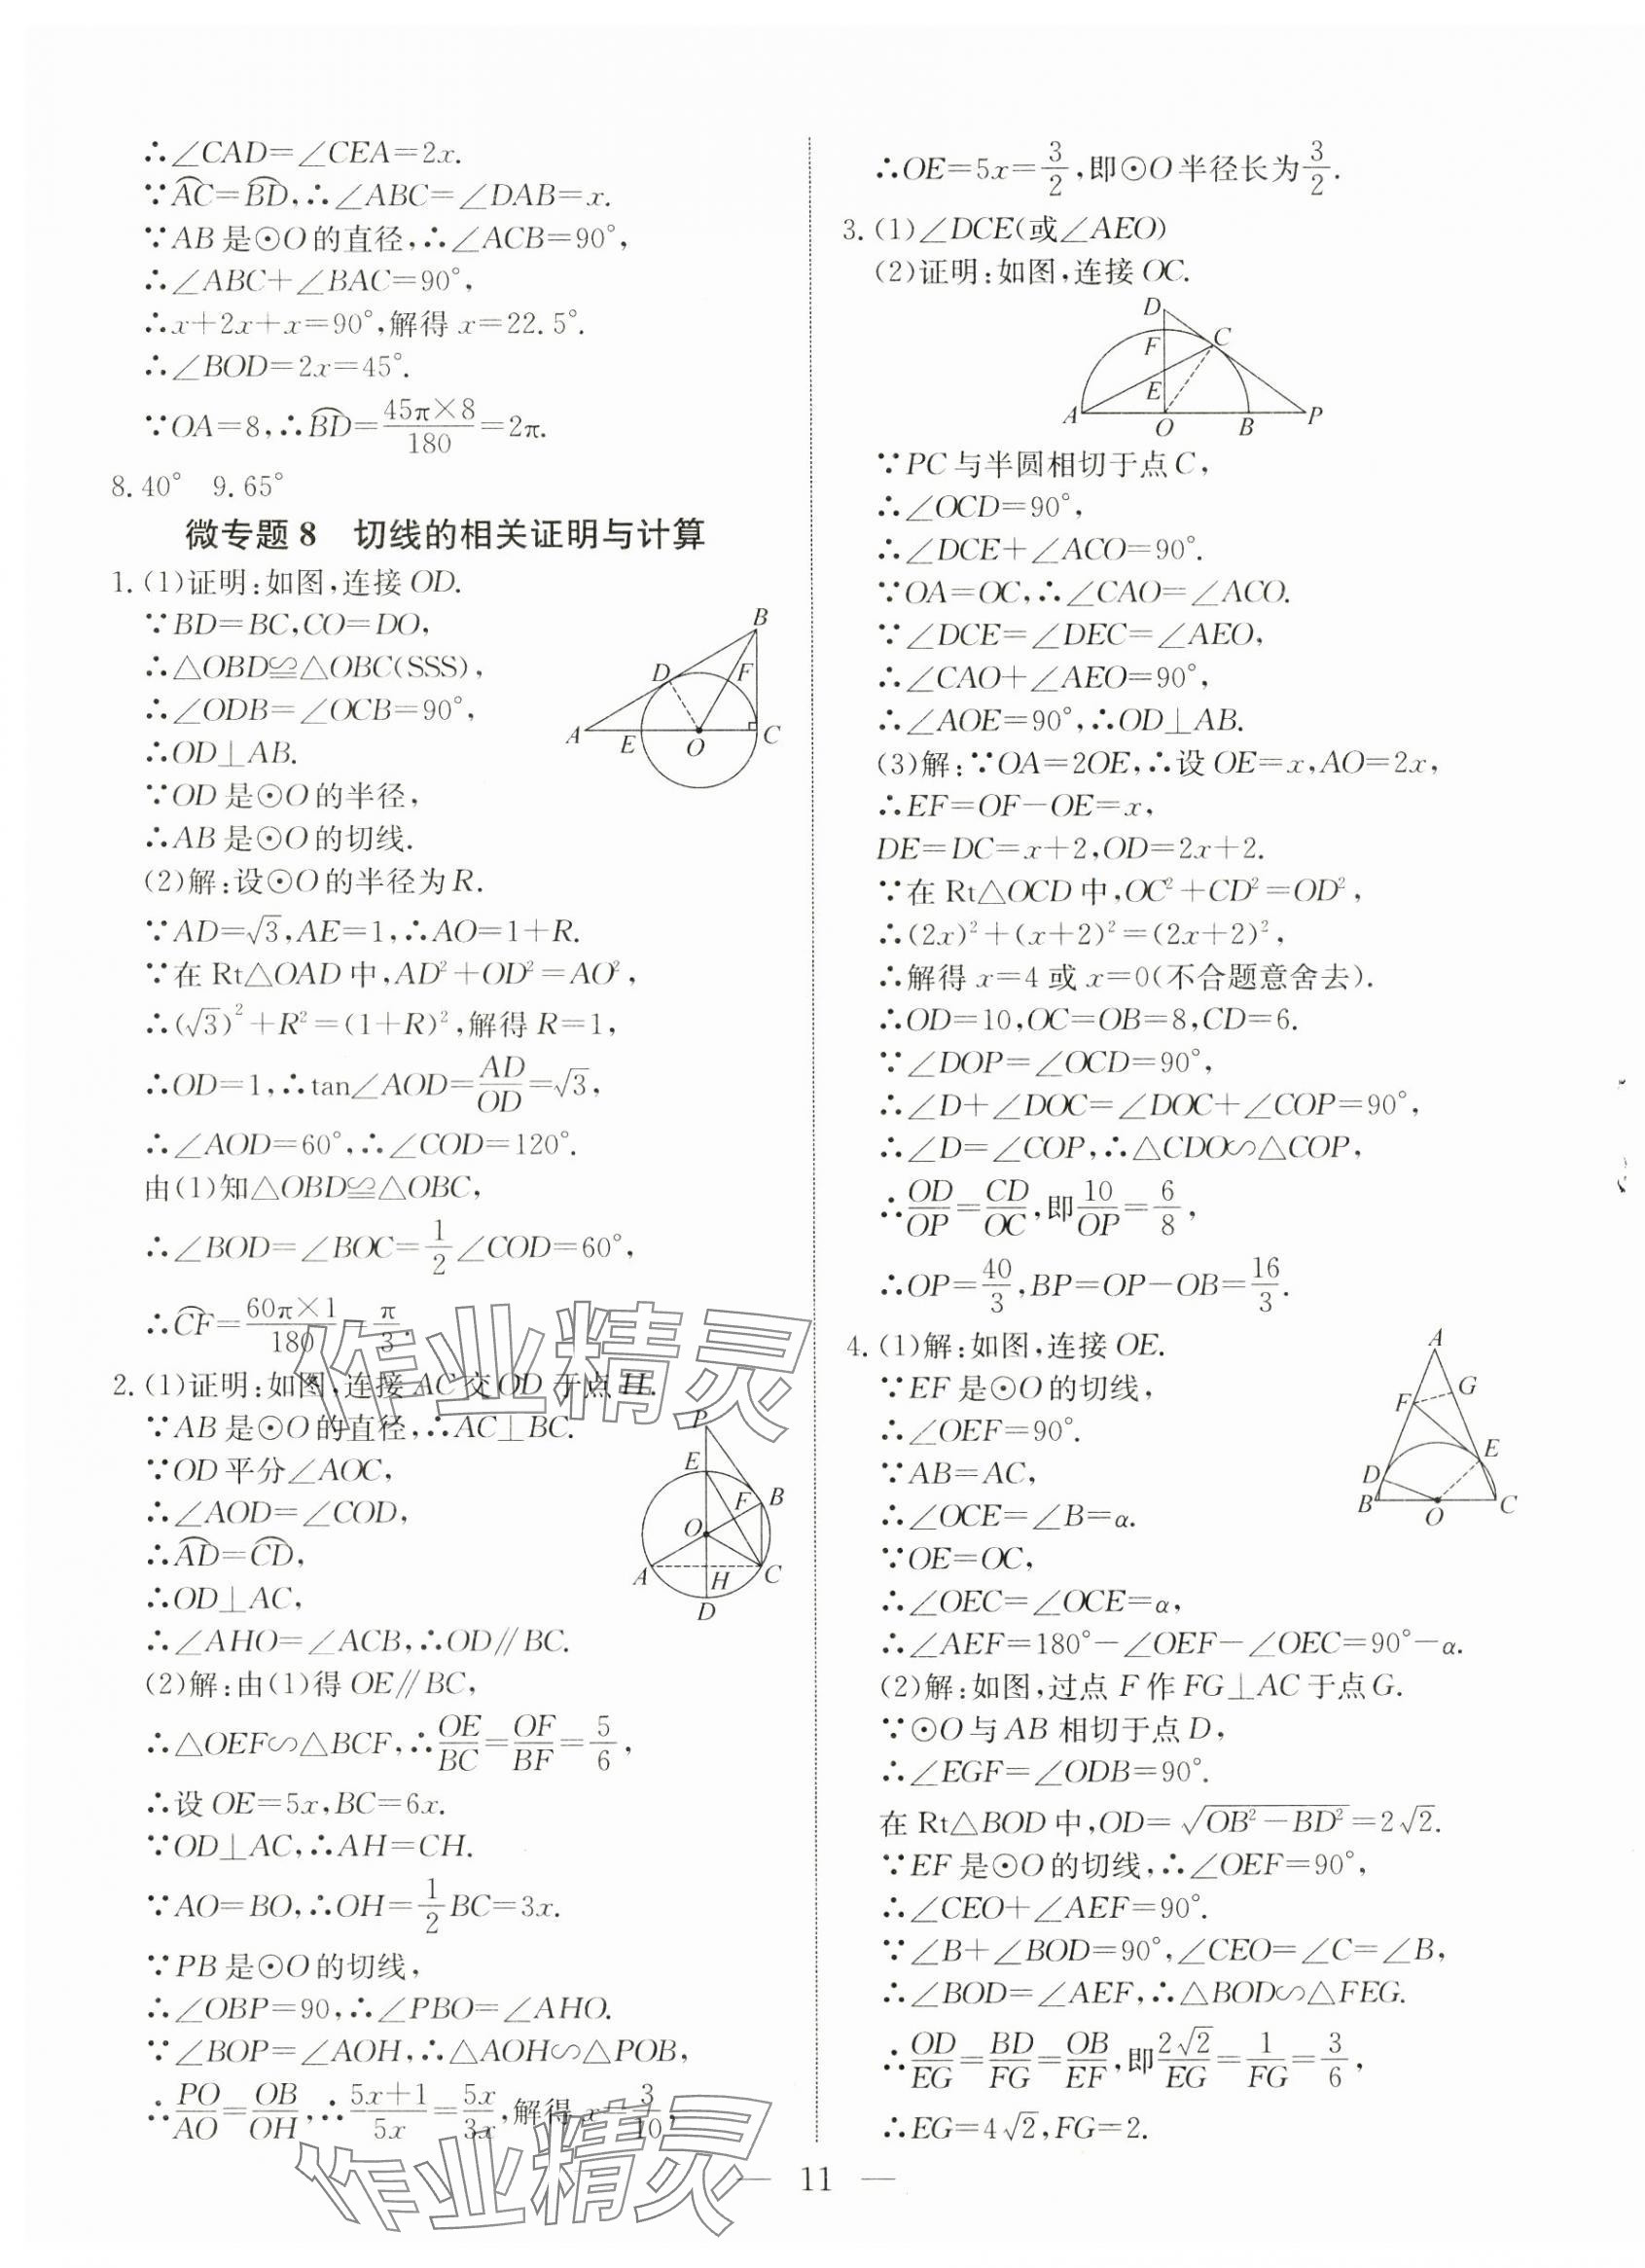 ∴∠CAD=∠CEA=2x.
∵⌒AC=⌒BD,∴∠ABC=∠DAB=x.
∵AB是⊙O的直径,∴∠ACB=90°,
∴∠ABC+∠BAC=90°,
∴x+2x+x=90°,解得x=22.5°.
∴∠BOD=2x=45°.
∵OA=8,∴⌒BD=45π×8/180=2π.
8.40° 9.65°
微专题8 切线的相关证明与计算
1.(1)证明:如图,连接OD.
∵BD=BC,CO=DO,
∴△OBD≌△OBC(SSS),
∴∠ODB=∠OCB=90°,
∴OD⊥AB.
∵OD是⊙O的半径,
∴AB是⊙O的切线.
B
D
F
A
E
O
C
(2)解:设⊙O的半径为R.
∵AD=√3,AE=1,∴AO=1+R.
∵在Rt△OAD中,AD²+OD²=AO²,
∴(√3)²+R²=(1+R)²,解得R=1,
∴OD=1,∴tan∠AOD=AD/OD=√3,
∴∠AOD=60°,∴∠COD=120°.
由(1)知△OBD≌△OBC,
∴∠BOD=∠BOC=1/2∠COD=60°,
∴⌒CF=60π×1/180=π/3.
2.(1)证明:如图,连接AC交OD于点H.
∵AB是⊙O的直径,∴AC⊥BC.
∵OD平分∠AOC,
∴∠AOD=∠COD,
∴⌒AD=⌒CD,
∴OD⊥AC,
∴∠AHO=∠ACB,∴OD∥BC.
P
E
F
B
O
A
H
C
D
(2)解:由(1)得OE∥BC,
∴△OEF∽△BCF,∴OE/BC=OF/BF=5/6,
∴设OE=5x,BC=6x.
∵OD⊥AC,∴AH=CH.
∵AO=BO,∴OH=1/2BC=3x.
∵PB是⊙O的切线,
∴∠OBP=90,∴∠PBO=∠AHO.
∵∠BOP=∠AOH,∴△AOH∽△POB,
∴PO/AO=OB/OH,∴5x+1/5x=5x/3x,解得x=3/10,
∴OE=5x=3/2,即⊙O半径长为3/2.
3.(1)∠DCE(或∠AEO)
(2)证明:如图,连接OC.
D
F
C
E
A
O
B
P
∵PC与半圆相切于点C,
∴∠OCD=90°,
∴∠DCE+∠ACO=90°.
∵OA=OC,∴∠CAO=∠ACO.
∵∠DCE=∠DEC=∠AEO,
∴∠CAO+∠AEO=90°,
∴∠AOE=90°,∴OD⊥AB.
(3)解:∵OA=2OE,∴设OE=x,AO=2x,
∴EF=OF-OE=x,
DE=DC=x+2,OD=2x+2.
∵在Rt△OCD中,OC²+CD²=OD²,
∴(2x)²+(x+2)²=(2x+2)²,
∴解得x=4或x=0(不合题意舍去).
∴OD=10,OC=OB=8,CD=6.
∵∠DOP=∠OCD=90°,
∴∠D+∠DOC=∠DOC+∠COP=90°,
∴∠D=∠COP,∴△CDO∽△COP,
∴OD/OP=CD/OC,即10/OP=6/8,
∴OP=40/3,BP=OP-OB=16/3.
4.(1)解:如图,连接OE.
∵EF是⊙O的切线,
∴∠OEF=90°.
∵AB=AC,
∴∠OCE=∠B=α.
∵OE=OC,
∴∠OEC=∠OCE=α,
∴∠AEF=180°-∠OEF-∠OEC=90°-α.
A
F
G
E
D
B
O
C
(2)解:如图,过点F作FG⊥AC于点G.
∵⊙O与AB相切于点D,
∴∠EGF=∠ODB=90°.
在Rt△BOD中,OD=√(OB²-BD²)=2√2.
∵EF是⊙O的切线,∴∠OEF=90°,
∴∠CEO+∠AEF=90°.
∵∠B+∠BOD=90°,∠CEO=∠C=∠B,
∴∠BOD=∠AEF,∴△BOD∽△FEG.
∴OD/EG=BD/FG=OB/EF,即2√2/EG=1/FG=3/6,
∴EG=4√2,FG=2.
— 11 —
作业精灵
作业精灵